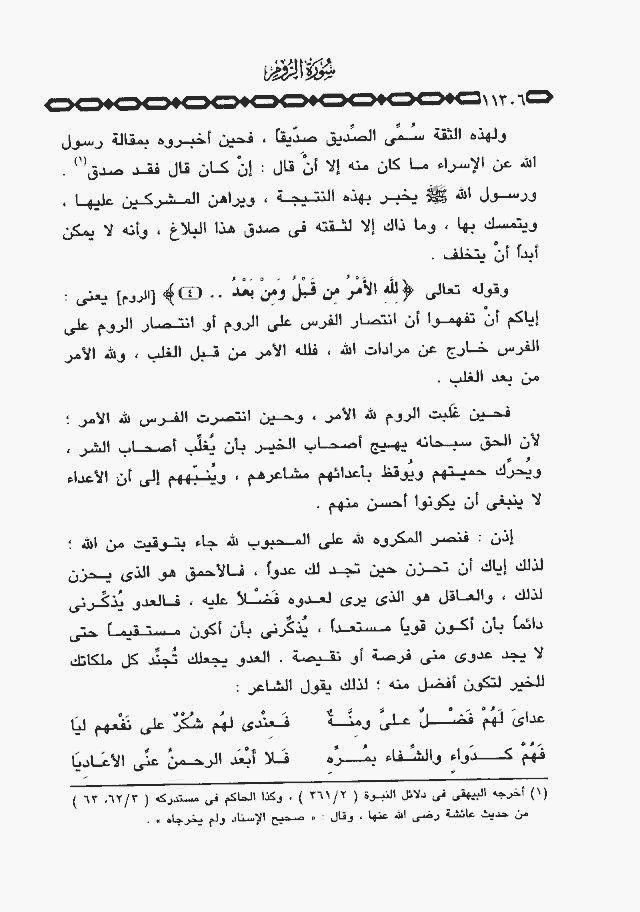 سُورَةُ الرُّومِ
١١٣٠٦
ولهذه الثقة سُمِّى الصِّديق صدّيقاً ، فحين أخبروه بمقالة رسول
الله عن الإسراء ما كان منه إلا أنْ قال : إنْ كان قال فقد صدق(١) .
ورسول الله ﷺ يخبر بهذه النتيجة ، ويراهن المشركين عليها ،
ويتمسك بها ، وما ذاك إلا لثقته فى صدق هذا البلاغ ، وأنه لا يمكن
أبداً أنْ يتخلف .
وقوله تعالى ﴿ لِلَّهِ الأَمْرُ مِن قَبْلُ وَمِنْ بَعْدُ .. (٤)﴾ [الروم] يعنى :
إياكم أنْ تفهموا أن انتصار الفرس على الروم أو انتصار الروم على
الفرس خارج عن مرادات الله ، فلله الأمر من قبل الغلب ، ولله الأمر
من بعد الغلب .
فحين غَلَبت الروم لله الأمر ، وحين انتصرت الفرس لله الأمر ؛
لأن الحق سبحانه يهيج أصحاب الخير بأن يُغلِّب أصحاب الشر ،
ويُحرِّك حميتهم ويُوقظ بأعدائهم مشاعرهم ، ويُنبِّههم إلى أن الأعداء
لا ينبغى أن يكونوا أحسن منهم .
إذن : فنصر المكروه لله على المحبوب لله جاء بتوقيت من الله ؛
لذلك إياك أن تحزن حين تجد لك عدواً ، فالأحمق هو الذى يحزن
لذلك ، والعاقل هو الذى يرى لعدوه فَضْلاً عليه ، فالعدو يُذكِّرنى
دائماً بأن أكون قوياً مستعداً ، يُذكِّرنى بأن أكون مستقيماً حتى
لا يجد عدوى منى فرصة أو نقيصة . العدو يجعلك تُجنِّد كل ملكاتك
للخير لتكون أفضل منه ؛ لذلك يقول الشاعر :
عداىَ لَهُمْ فَضْلٌ علىَّ ومِنَّةٌ فَعِنْدى لهُم شُكْرٌ على نَفْعهم ليَا
فَهُمْ كَدَواءٍ والشِّفاء بمُرِّه فَلا أبْعَد الرحمنُ عنِّى الأعَاديَا
(١) أخرجه البيهقى فى دلائل النبوة ( ٣٦١/٢ ) ، وكذا الحاكم فى مستدركه ( ٦٢/٣، ٦٣ )
من حديث عائشة رضى الله عنها ، وقال : « صحيح الإسناد ولم يخرجاه » .